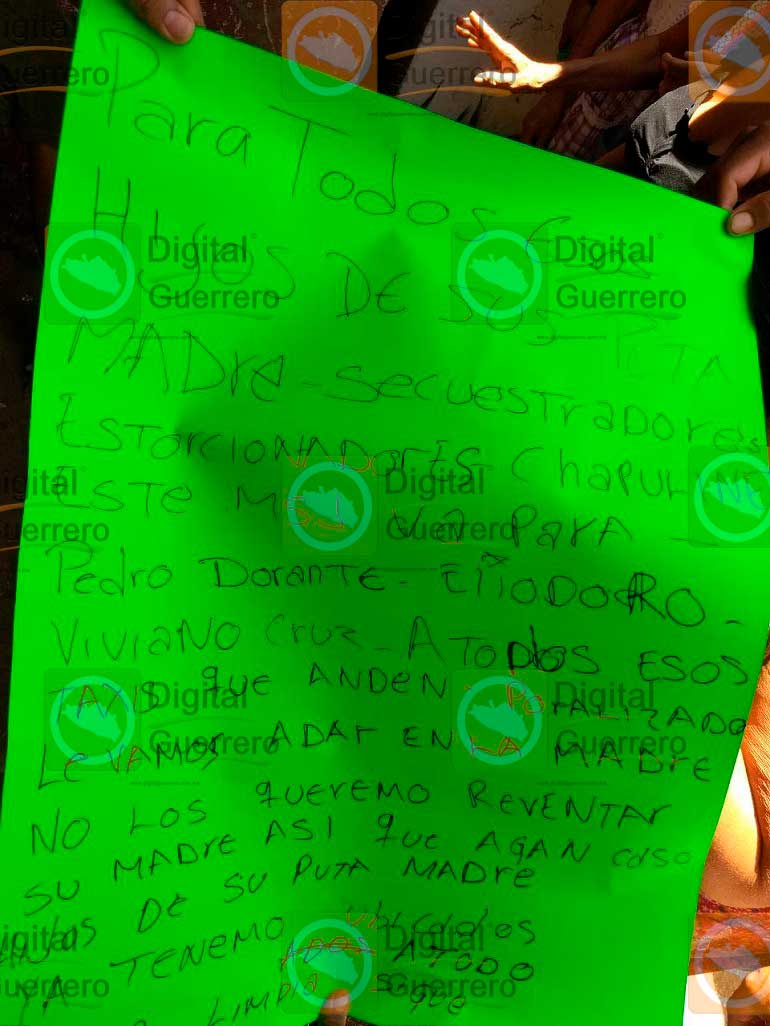 Para Todos Esos
HIJOS DE SUS PUTA
MADRE - SECUESTRADORES
ESTORCIONADORES CHAPULINES
ESTE ME VA PARA
Pedro DORANTE - EliODORO -
VIVIANO CRUZ - A TODOS ESOS
TAXIS QUE ANDEN POLALIZADO
LE VAMOS ADAR EN LA MADRE
NO LOS QUEREMO REVENTAR
SU MADRE ASI QUE AGAN CASO
DE SU PUTA MADRE
YA TENEMO UbicADOS
ATODO
LIMPIA S. QUE
Digital
Guerrero
Digital
Guerrero
Digital
Guerrero
Digital
Guerrero
Digital
Guerrero